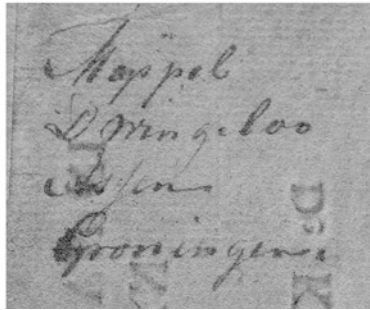 Meppel
Dwingeloo
Assen
Groningen